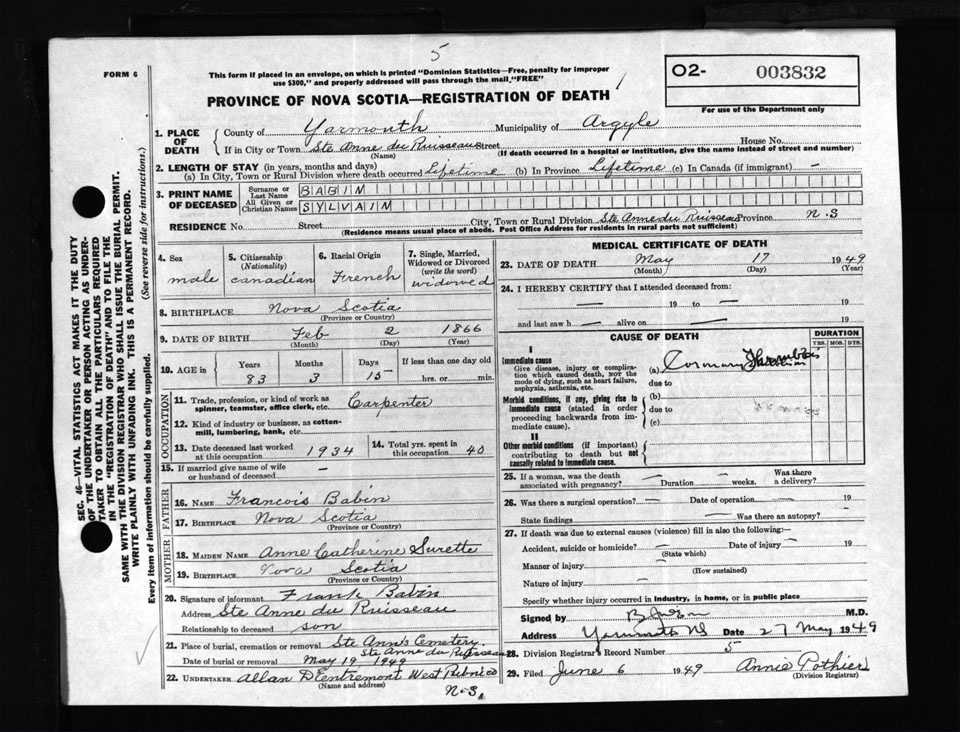 5
FORM 6
This form if placed in an envelope, on which is printed "Dominion Statistics—Free, penalty for improper
use $300," and properly addressed will pass through the mail "FREE"
02- 003832
For use of the Department only
PROVINCE OF NOVA SCOTIA—REGISTRATION OF DEATH
1. PLACE OF DEATH
County of Yarmouth Municipality of Argyle
If in City or Town Ste Anne du Ruisseau Street House No.
(Name) (If death occurred in a hospital or institution, give the name instead of street and number)
2. LENGTH OF STAY (in years, months and days)
(a) In City, Town or Rural Division where death occurred Lifetime (b) In Province Lifetime (c) In Canada (if immigrant) —
3. PRINT NAME OF DECEASED
Surname or Last Name BABIN
All Given or Christian Names SYLVAIN
RESIDENCE No. Street City, Town or Rural Division Ste Anne du Ruisseau Province N.S
(Residence means usual place of abode. Post Office Address for residents in rural parts not sufficient)
4. Sex
male
5. Citizenship
(Nationality)
canadian
6. Racial Origin
French
7. Single, Married,
Widowed or Divorced
(write the word)
widowed
8. BIRTHPLACE Nova Scotia
(Province or Country)
9. DATE OF BIRTH Feb 2 1866
(Month) (Day) (Year)
10. AGE in
Years Months Days If less than one day old
83 3 15 hrs. or min.
OCCUPATION
11. Trade, profession, or kind of work as
spinner, teamster, office clerk, etc. Carpenter
12. Kind of industry or business, as cotton-
mill, lumbering, bank, etc.
13. Date deceased last worked
at this occupation 1934
14. Total yrs. spent in
this occupation 40
15. If married give name of wife
or husband of deceased —
FATHER
16. NAME Francois Babin
17. BIRTHPLACE Nova Scotia
(Province or Country)
MOTHER
18. MAIDEN NAME Anne Catherine Surette
19. BIRTHPLACE Nova Scotia
(Province or Country)
20. Signature of informant Frank Babin
Address Ste Anne du Ruisseau
Relationship to deceased son
21. Place of burial, cremation or removal Ste Ann's Cemetery
Ste Anne du Ruisseau
Date of burial or removal May 19 1949
22. UNDERTAKER Allan D'Entremont West Pubnico
(Name and address)
N.S.
MEDICAL CERTIFICATE OF DEATH
23. DATE OF DEATH May 17 1949
(Month) (Day) (Year)
24. I HEREBY CERTIFY that I attended deceased from:
— 19 to — 19
and last saw h — alive on — 19
CAUSE OF DEATH
DURATION
YRS. MOS. DYS.
I
Immediate cause
Give disease, injury or complica-
tion which caused death, NOT the
mode of dying, such as heart failure,
asphyxia, asthenia, etc.
(a) Coronary Thrombosis
due to
Morbid conditions, if any, giving rise to
immediate cause (stated in order
proceeding backwards from im-
mediate cause).
(b)
due to
(c)
II
Other morbid conditions (if important)
contributing to death but not
causally related to immediate cause.
25. If a woman, was the death
associated with pregnancy? — Duration — weeks. Was there
a delivery? —
26. Was there a surgical operation? — Date of operation — 19
State findings — Was there an autopsy? —
27. If death was due to external causes (violence) fill in also the following:—
Accident, suicide or homicide? — Date of injury — 19
(State which)
Manner of injury —
(How sustained)
Nature of injury —
Specify whether injury occurred in industry, in home, or in public place
Signed by M.D.
Address Yarmouth NS Date 27 May 1949
28. Division Registrar's Record Number 5
29. Filed June 6 1949 Annie Pothier
(Division Registrar)
SEC. 46—VITAL STATISTICS ACT MAKES IT THE DUTY
OF THE UNDERTAKER OR PERSON ACTING AS UNDER-
TAKER TO OBTAIN ALL THE PARTICULARS REQUIRED
IN THE "REGISTRATION OF DEATH" AND TO FILE THE
SAME WITH THE DIVISION REGISTRAR WHO SHALL ISSUE THE BURIAL PERMIT.
WRITE PLAINLY WITH UNFADING INK. THIS IS A PERMANENT RECORD.
Every item of information should be carefully supplied. (See reverse side for instructions.)